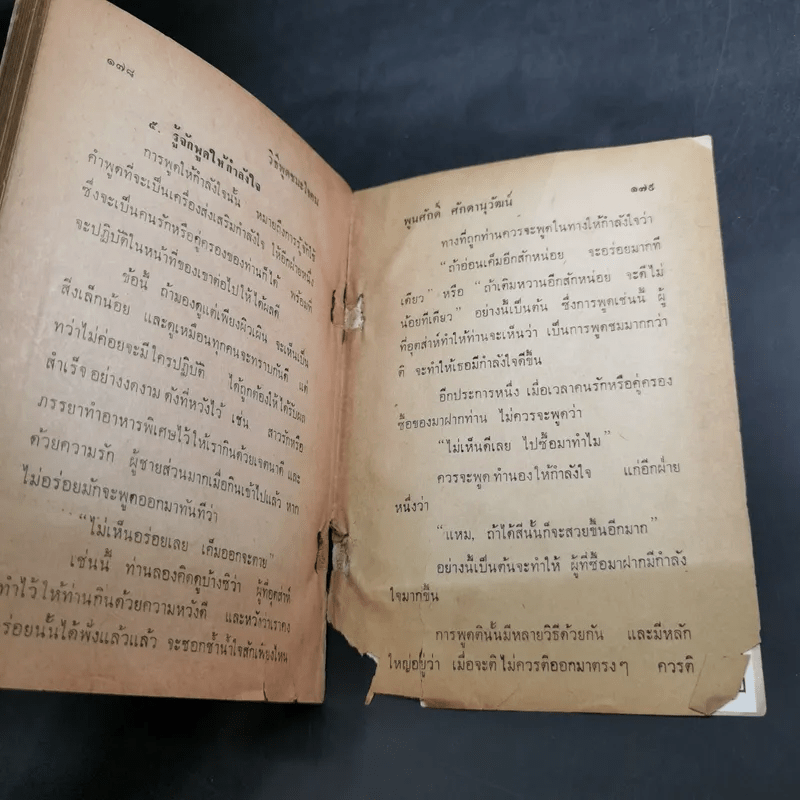 ๑๗๘
วิธีพูดชนะใจคน
๕. รู้จักพูดให้กำลังใจ
การพูดให้กำลังใจนั้น หมายถึงการรู้จักใช้
คำพูดที่จะเป็นเครื่องส่งเสริมกำลังใจ ให้อีกฝ่ายหนึ่ง
ซึ่งจะเป็นคนรักหรือคู่ครองของท่านก็ได้ พร้อมที่
จะปฏิบัติในหน้าที่ของเขาต่อไปให้ได้ผลดี
ข้อนี้ ถ้ามองดูแต่เพียงผิวเผิน จะเห็นเป็น
สิ่งเล็กน้อย และดูเหมือนทุกคนจะทราบกันดี แต่
ทว่าไม่ค่อยจะมีใครปฏิบัติ ได้ถูกต้องให้ได้รับผล
สำเร็จอย่างงดงาม ดังที่หวังไว้ เช่น สาวรักหรือ
ภรรยาทำอาหารพิเศษไว้ให้เรากินด้วยเจตนาดี และ
ด้วยความรัก ผู้ชายส่วนมากเมื่อกินเข้าไปแล้ว หาก
ไม่อร่อยมักจะพูดออกมาทันทีว่า
“ไม่เห็นอร่อยเลย เค็มออกจะตาย”
เช่นนี้ ท่านลองคิดดูบ้างซิว่า ผู้ที่อุตส่าห์
ทำไว้ให้ท่านกินด้วยความหวังดี และหวังว่าเราคง
ร่อยนั้นได้ฟังแล้วแล้ว จะชอกช้ำน้ำใจสักเพียงไหน
พูนศักดิ์ ศักดานุวัฒน์
๑๗๙
ทางที่ถูกท่านควรจะพูดในทางให้กำลังใจว่า
“ถ้าอ่อนเค็มอีกสักหน่อย จะอร่อยมากที
เดียว” หรือ “ถ้าเติมหวานอีกสักหน่อย จะดีไม่
น้อยทีเดียว” อย่างนี้เป็นต้น ซึ่งการพูดเช่นนี้ ผู้
ที่อุตส่าห์ทำให้ท่านจะเห็นว่า เป็นการพูดชมมากกว่า
ติ จะทำให้เธอมีกำลังใจดีขึ้น
อีกประการหนึ่ง เมื่อเวลาคนรักหรือคู่ครอง
ซื้อของมาฝากท่าน ไม่ควรจะพูดว่า
“ไม่เห็นดีเลย ไปซื้อมาทำไม”
ควรจะพูดทำนองให้กำลังใจ แก่อีกฝ่าย
หนึ่งว่า
“แหม, ถ้าได้สีนั้นก็จะสวยขึ้นอีกมาก”
อย่างนี้เป็นต้นจะทำให้ ผู้ที่ซื้อมาฝากมีกำลัง
ใจมากขึ้น
การพูดตินั้นมีหลายวิธีด้วยกัน และมีหลัก
ใหญ่อยู่ว่า เมื่อจะติไม่ควรติออกมาตรงๆ ควรติ